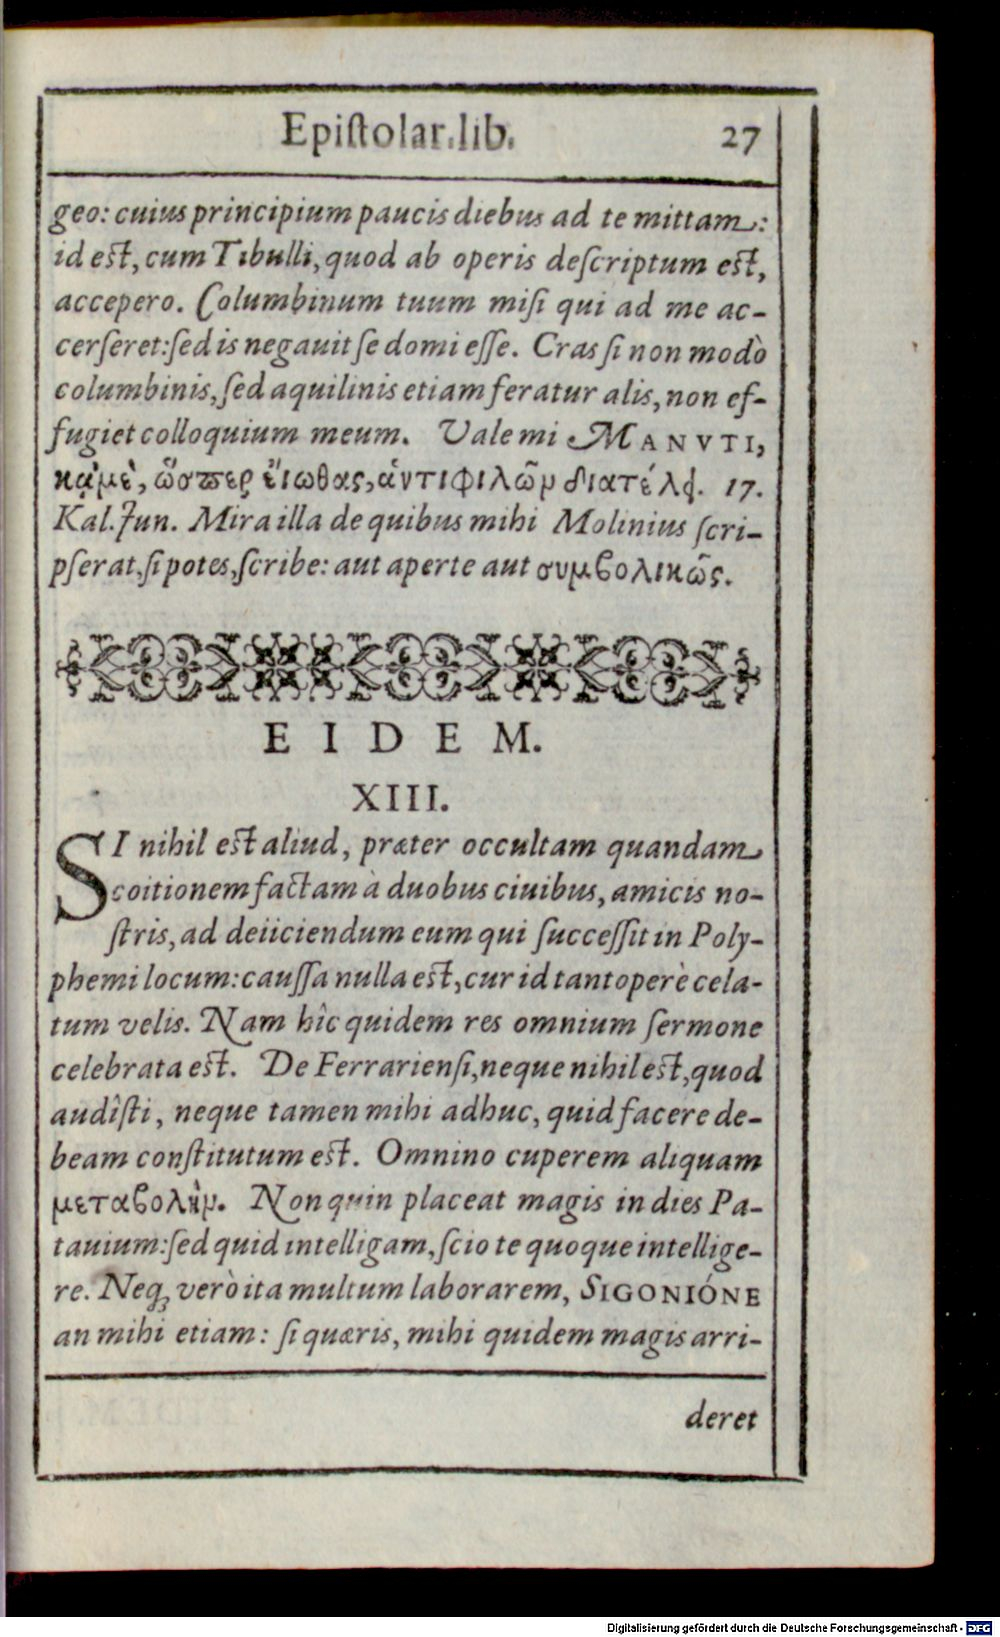 Epiſtolar.lib. 27
geo: cuius principium paucis diebus ad te mittam:
id eſt, cum Tibulli, quod ab operis deſcriptum eſt,
accepero. Columbinum tuum miſi qui ad me ac-
cerſeret: ſed is negauit ſe domi eſſe. Cras ſi non modò
columbinis, ſed aquilinis etiam feratur alis, non ef-
fugiet colloquium meum. Vale mi MANVTI,
κᾀμὲ, ὥσπερ εἴωθας, ἀντιφιλῶν διατέλει. 17.
Kal. Jun. Mira illa de quibus mihi Molinius ſcri-
pſerat, ſi potes, ſcribe: aut aperte aut συμβολικῶς.
EIDEM.
XIII.
SI nihil eſt aliud, præter occultam quandam
coitionem factam à duobus ciuibus, amicis no-
ſtris, ad deiiciendum eum qui ſucceſſit in Poly-
phemi locum: cauſſa nulla eſt, cur id tantoperè cela-
tum velis. Nam hîc quidem res omnium ſermone
celebrata eſt. De Ferrarienſi, neque nihil eſt, quod
audîſti, neque tamen mihi adhuc, quid facere de-
beam conſtitutum eſt. Omnino cuperem aliquam
μεταβολὴν. Non quin placeat magis in dies Pa-
tauium: ſed quid intelligam, ſcio te quoque intellige-
re. Neq; verò ita multum laborarem, SIGONIÓNE
an mihi etiam: ſi quæris, mihi quidem magis arri-
deret
Digitalisierung gefördert durch die Deutsche Forschungsgemeinschaft - DFG